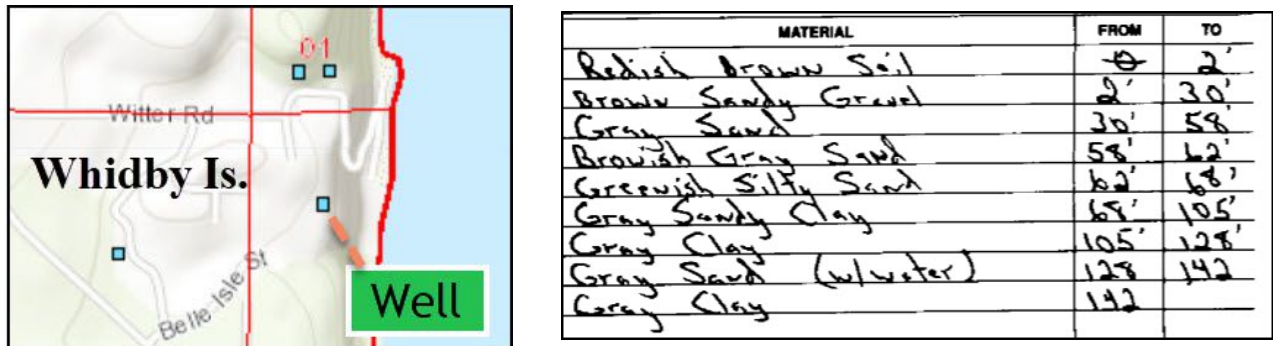 01
Witter Rd
Whidby Is.
Well
Belle Isle St
MATERIAL FROM TO
Redish Brown Soil 0 2'
Brown Sandy Gravel 2' 30'
Gray Sand 30' 58'
Browish Gray Sand 58' 62'
Greenish Silty Sand 62' 68'
Gray Sandy Clay 68' 105'
Gray Clay 105' 128'
Gray Sand (w/water) 128 142
Gray Clay 142